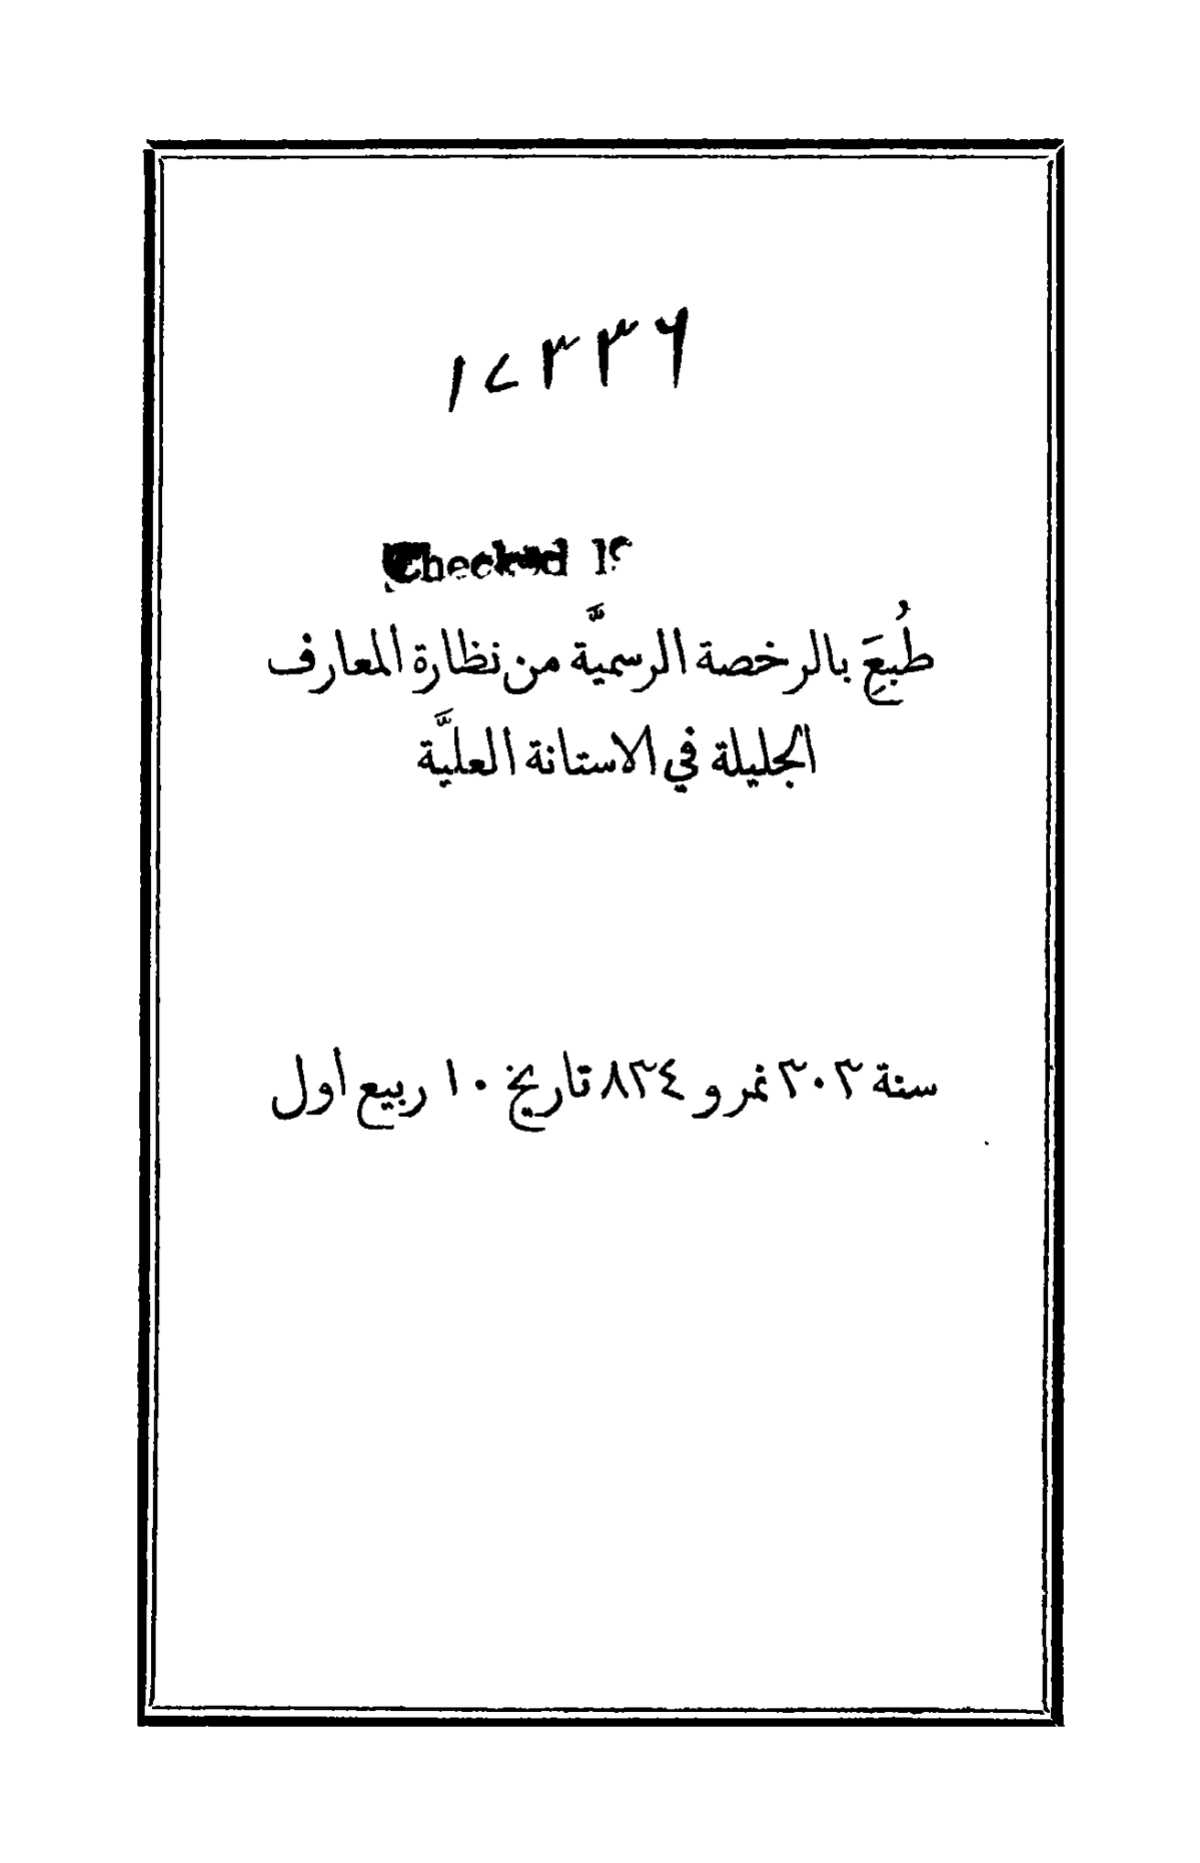 Checked 19
طُبِعَ بالرخصة الرسميَّة من نظارة المعارف
الجليلة في الاستانة العليَّة
سنة ٣٠٣ نمرو ٨٣٤ تاريخ ١٠ ربيع اول